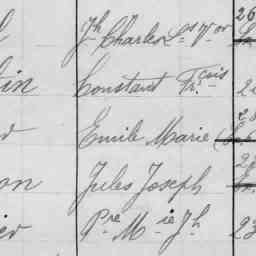 Jh Charles Ls Vor 26
tin Constant Frçois 2
Emile Marie
on Jules Joseph
ier Pre Mie Jh 23